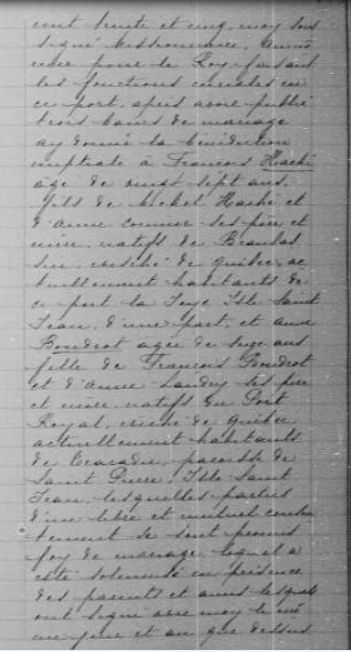 cent trente et cinq, moy sous
signé missionnaire, aumo
nier pour le Roy faisant
les fonctions curiales en
ce port, apres avoir publié
trois bancs de mariage
ay donné la bénédiction
nuptiale à Francois Haché
agé de vingt sept ans,
fils de Michel Haché et
d'Anne Cormier ses père et
mère, natifs de Beaubas
sin, evéché de quebec, ac
tuellement habitants de
ce port la Joye Isle Saint
Jean, d'une part, et Anne
Boudrot agée de seize ans
fille de Francois Boudrot
et d'Anne Landry ses père
et mère natifs du Port
Royal, evéché de Quebec
actuellement habitants
de Tracadie, paroisse de
Saint Pierre, Isle Saint
Jean, lesquelles parties
d'une libre et mutuel consen
tement se sont promis
foy de mariage lequel a
esté solemnisé en présence
des parents et amis lesquels
ont signé avec moy le mê
me jour et an que dessus